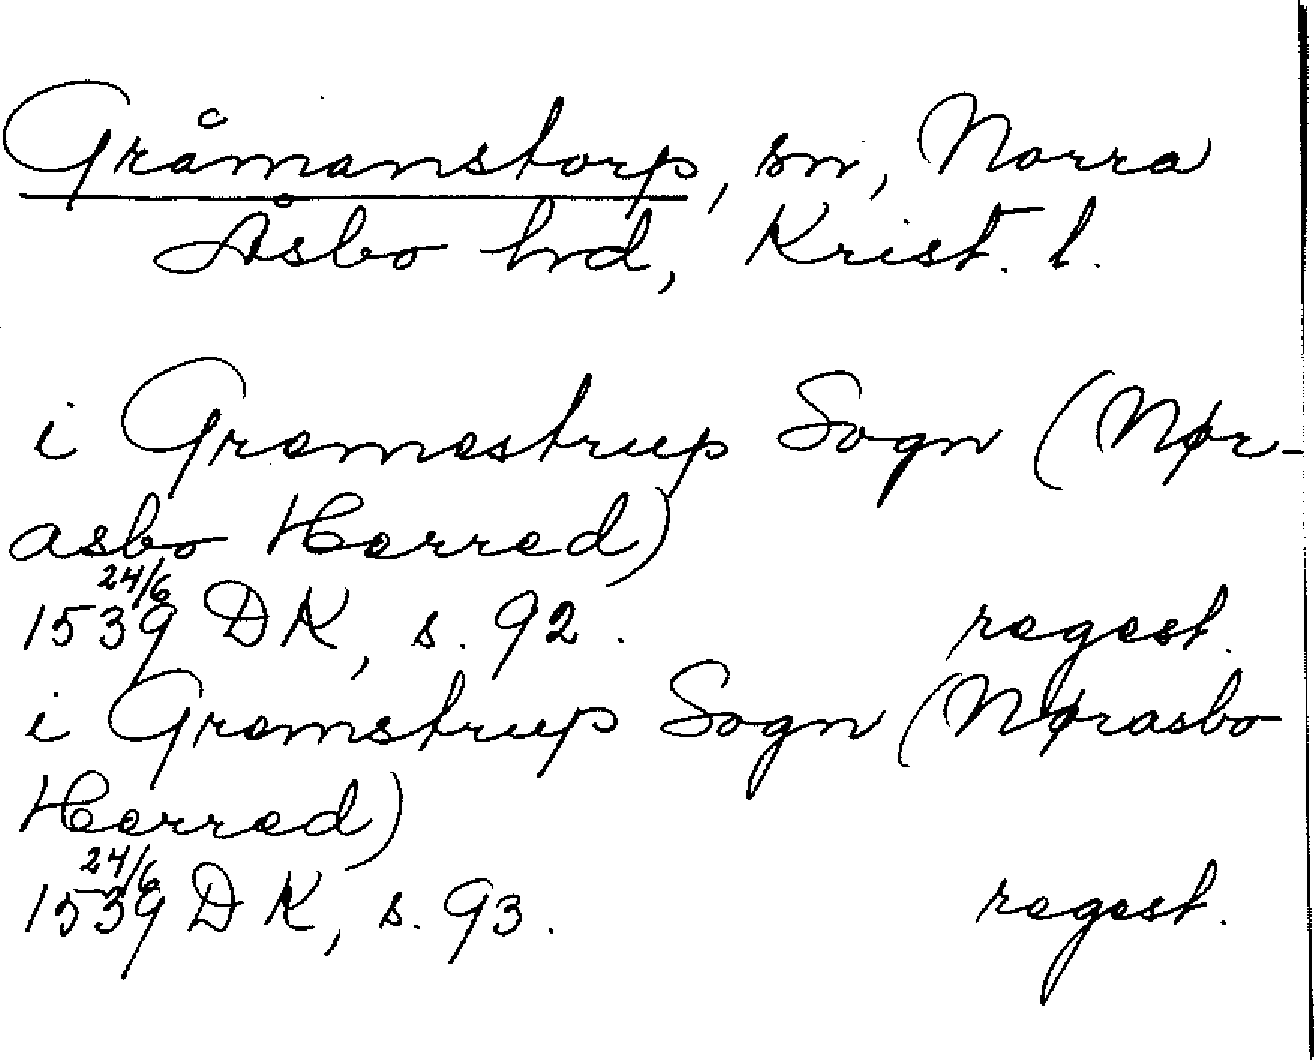 Gråmanstorp, sn, Norra
Åsbo hrd, Krist. l.
i Gremestrup Sogn (Nør-
asbo Herred)
24/6
1539 DK, s. 92. regest.
i Gremstrup Sogn (Nørasbo
Herred)
24/6
1539 DK, s. 93. regest.